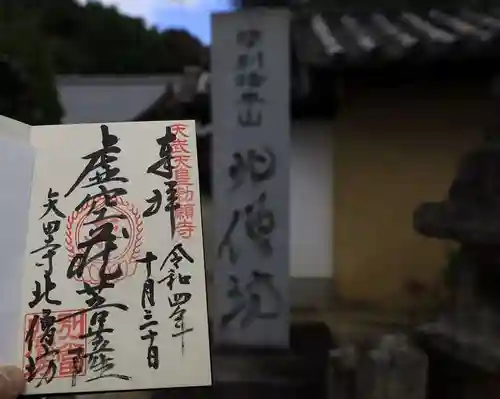 奉拝
天武天皇勅願寺
令和四年
十月三十日
虚空蔵菩薩
矢田寺北僧坊
別格本山
北僧坊